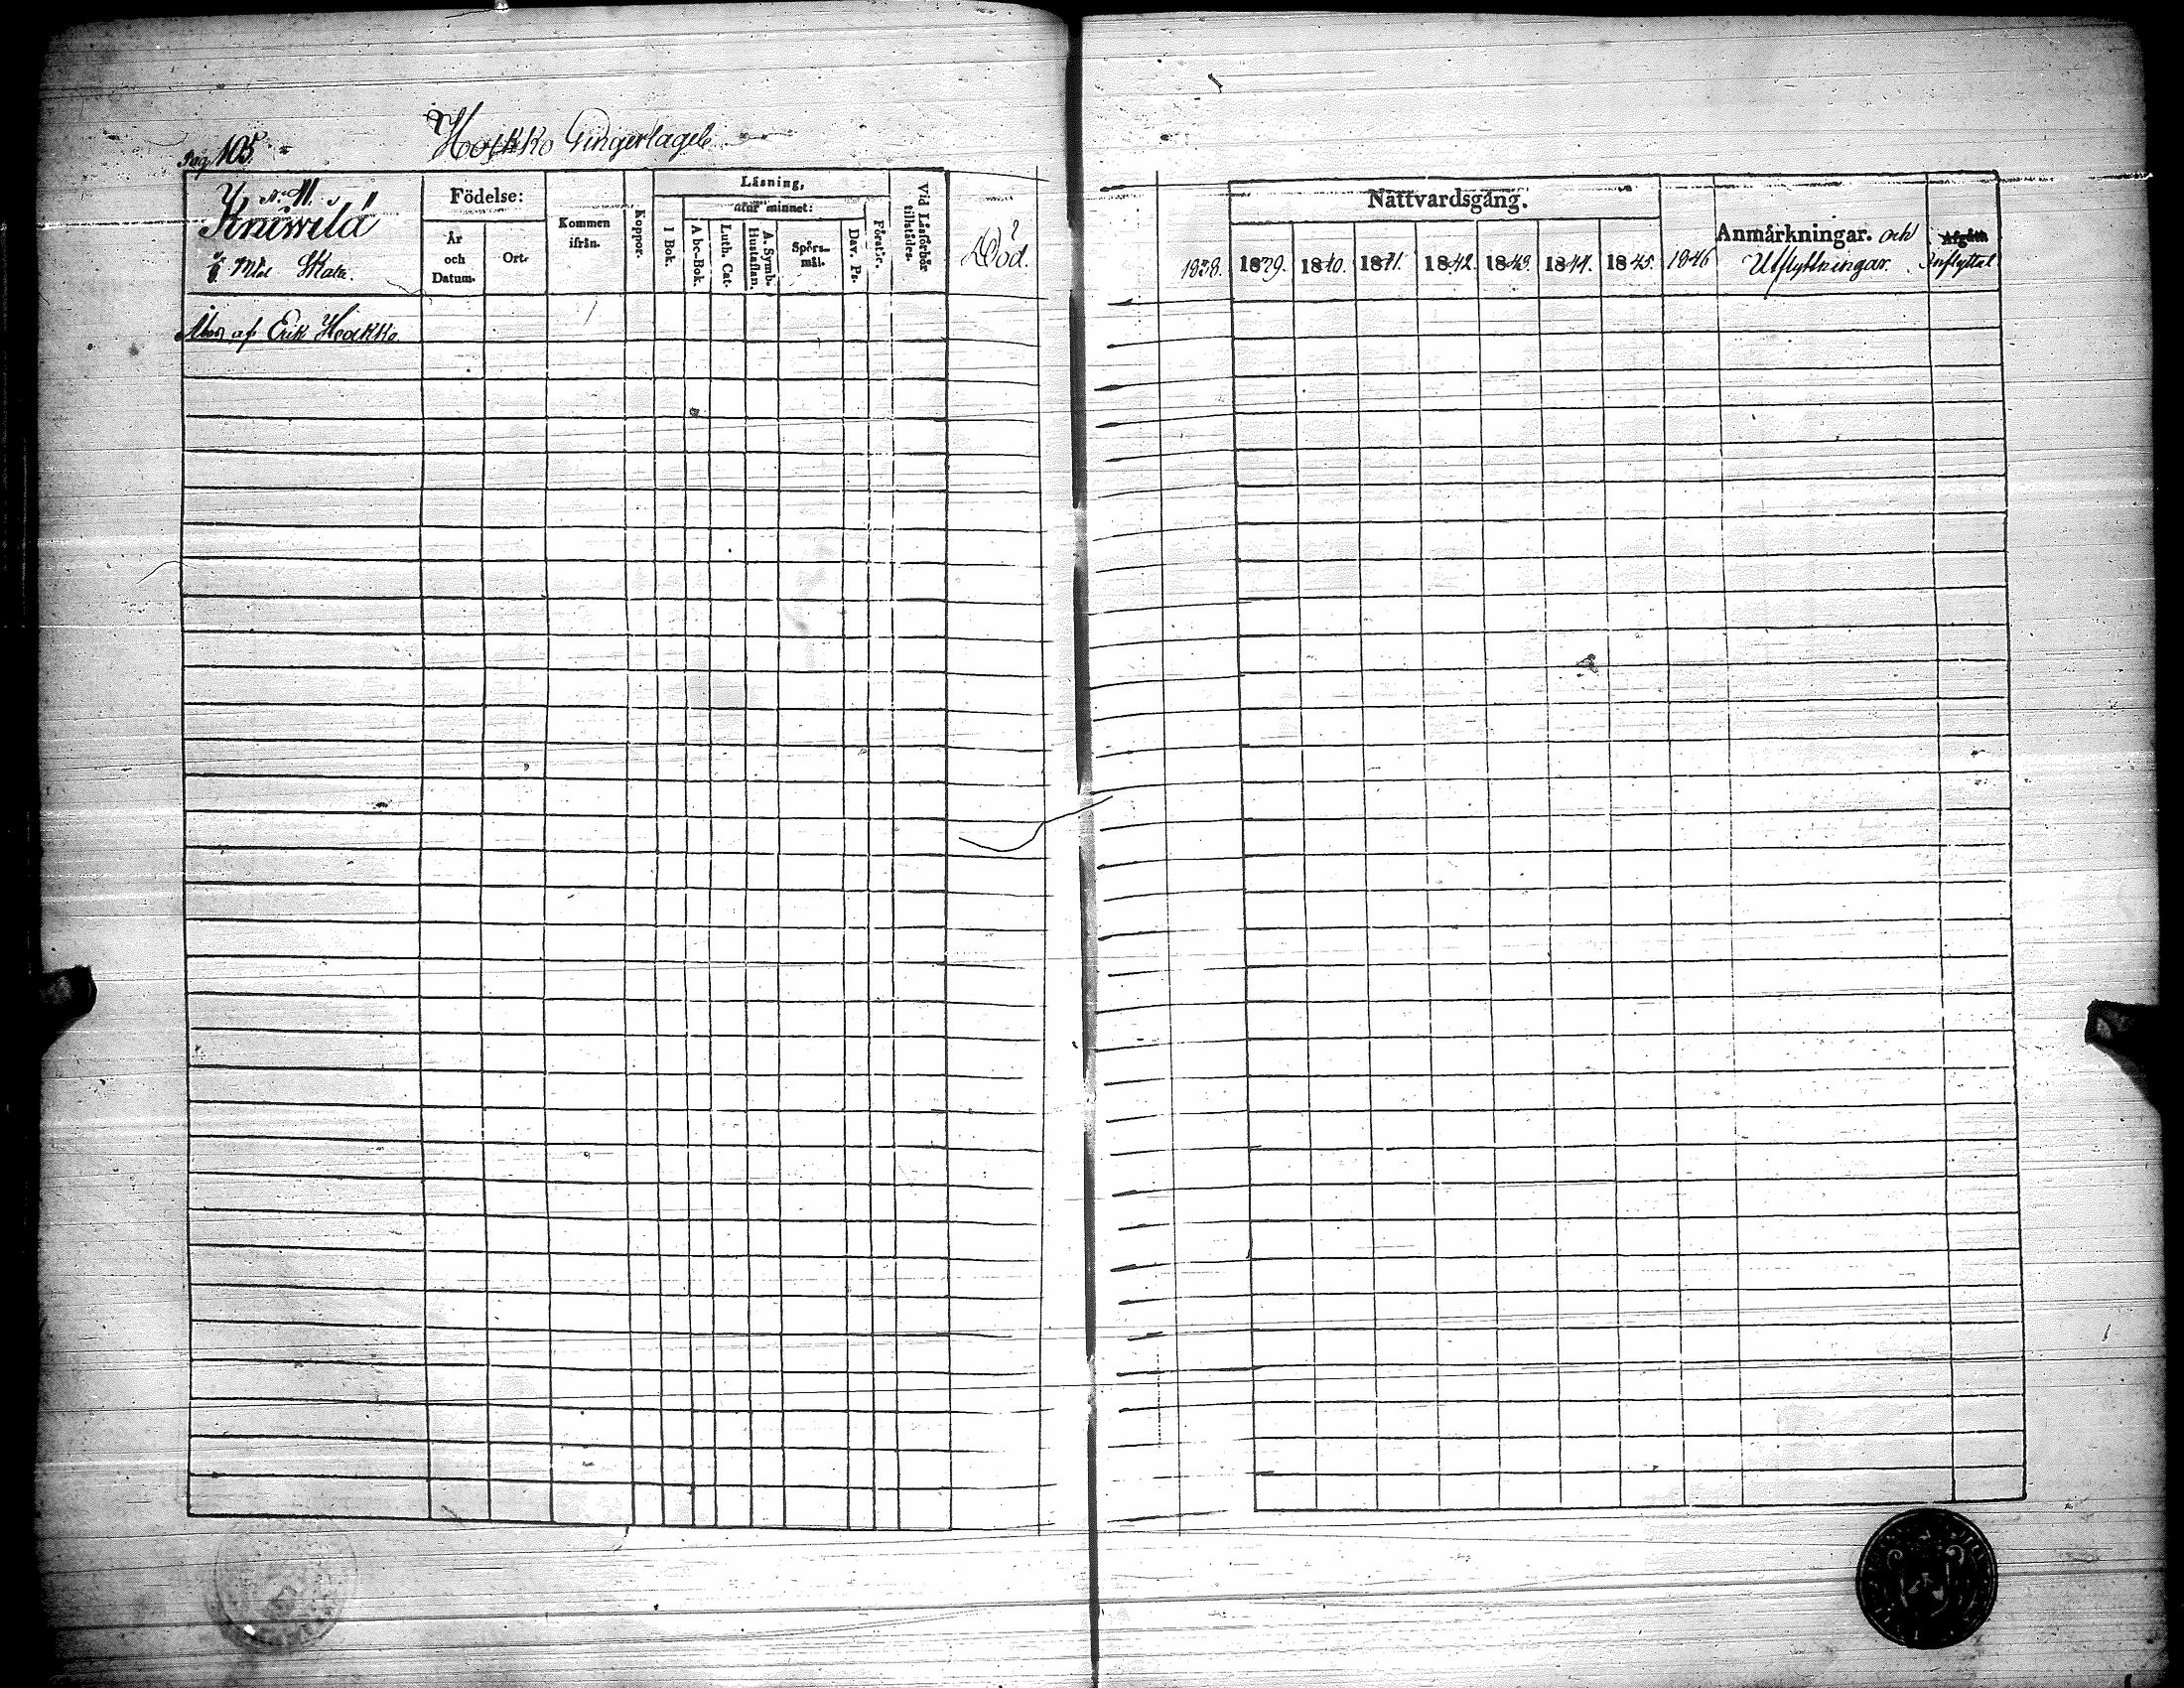 Pag 105.
Hockko Gingertagels
No 11.
Knuwilä
Mtl Skatt.
Födelse:
År
och
Datum.
Ort.
Kommen
ifrån.
Koppor.
Läsning,
utur minnet:
I Bok.
A bc-Bok.
Luth. Cat.
Hustaflan.
A. Symb.
Spörs-
mål.
Dav. Ps.
Förstår.
Vid Läsförhör
tillstädes.
Död.
af Erik Hockko
Nattvardsgång.
1838. 1839. 1840. 1841. 1842. 1843. 1844. 1845. 1846
Anmärkningar. och
Utflyttningar.
Afgått
Inflyttat